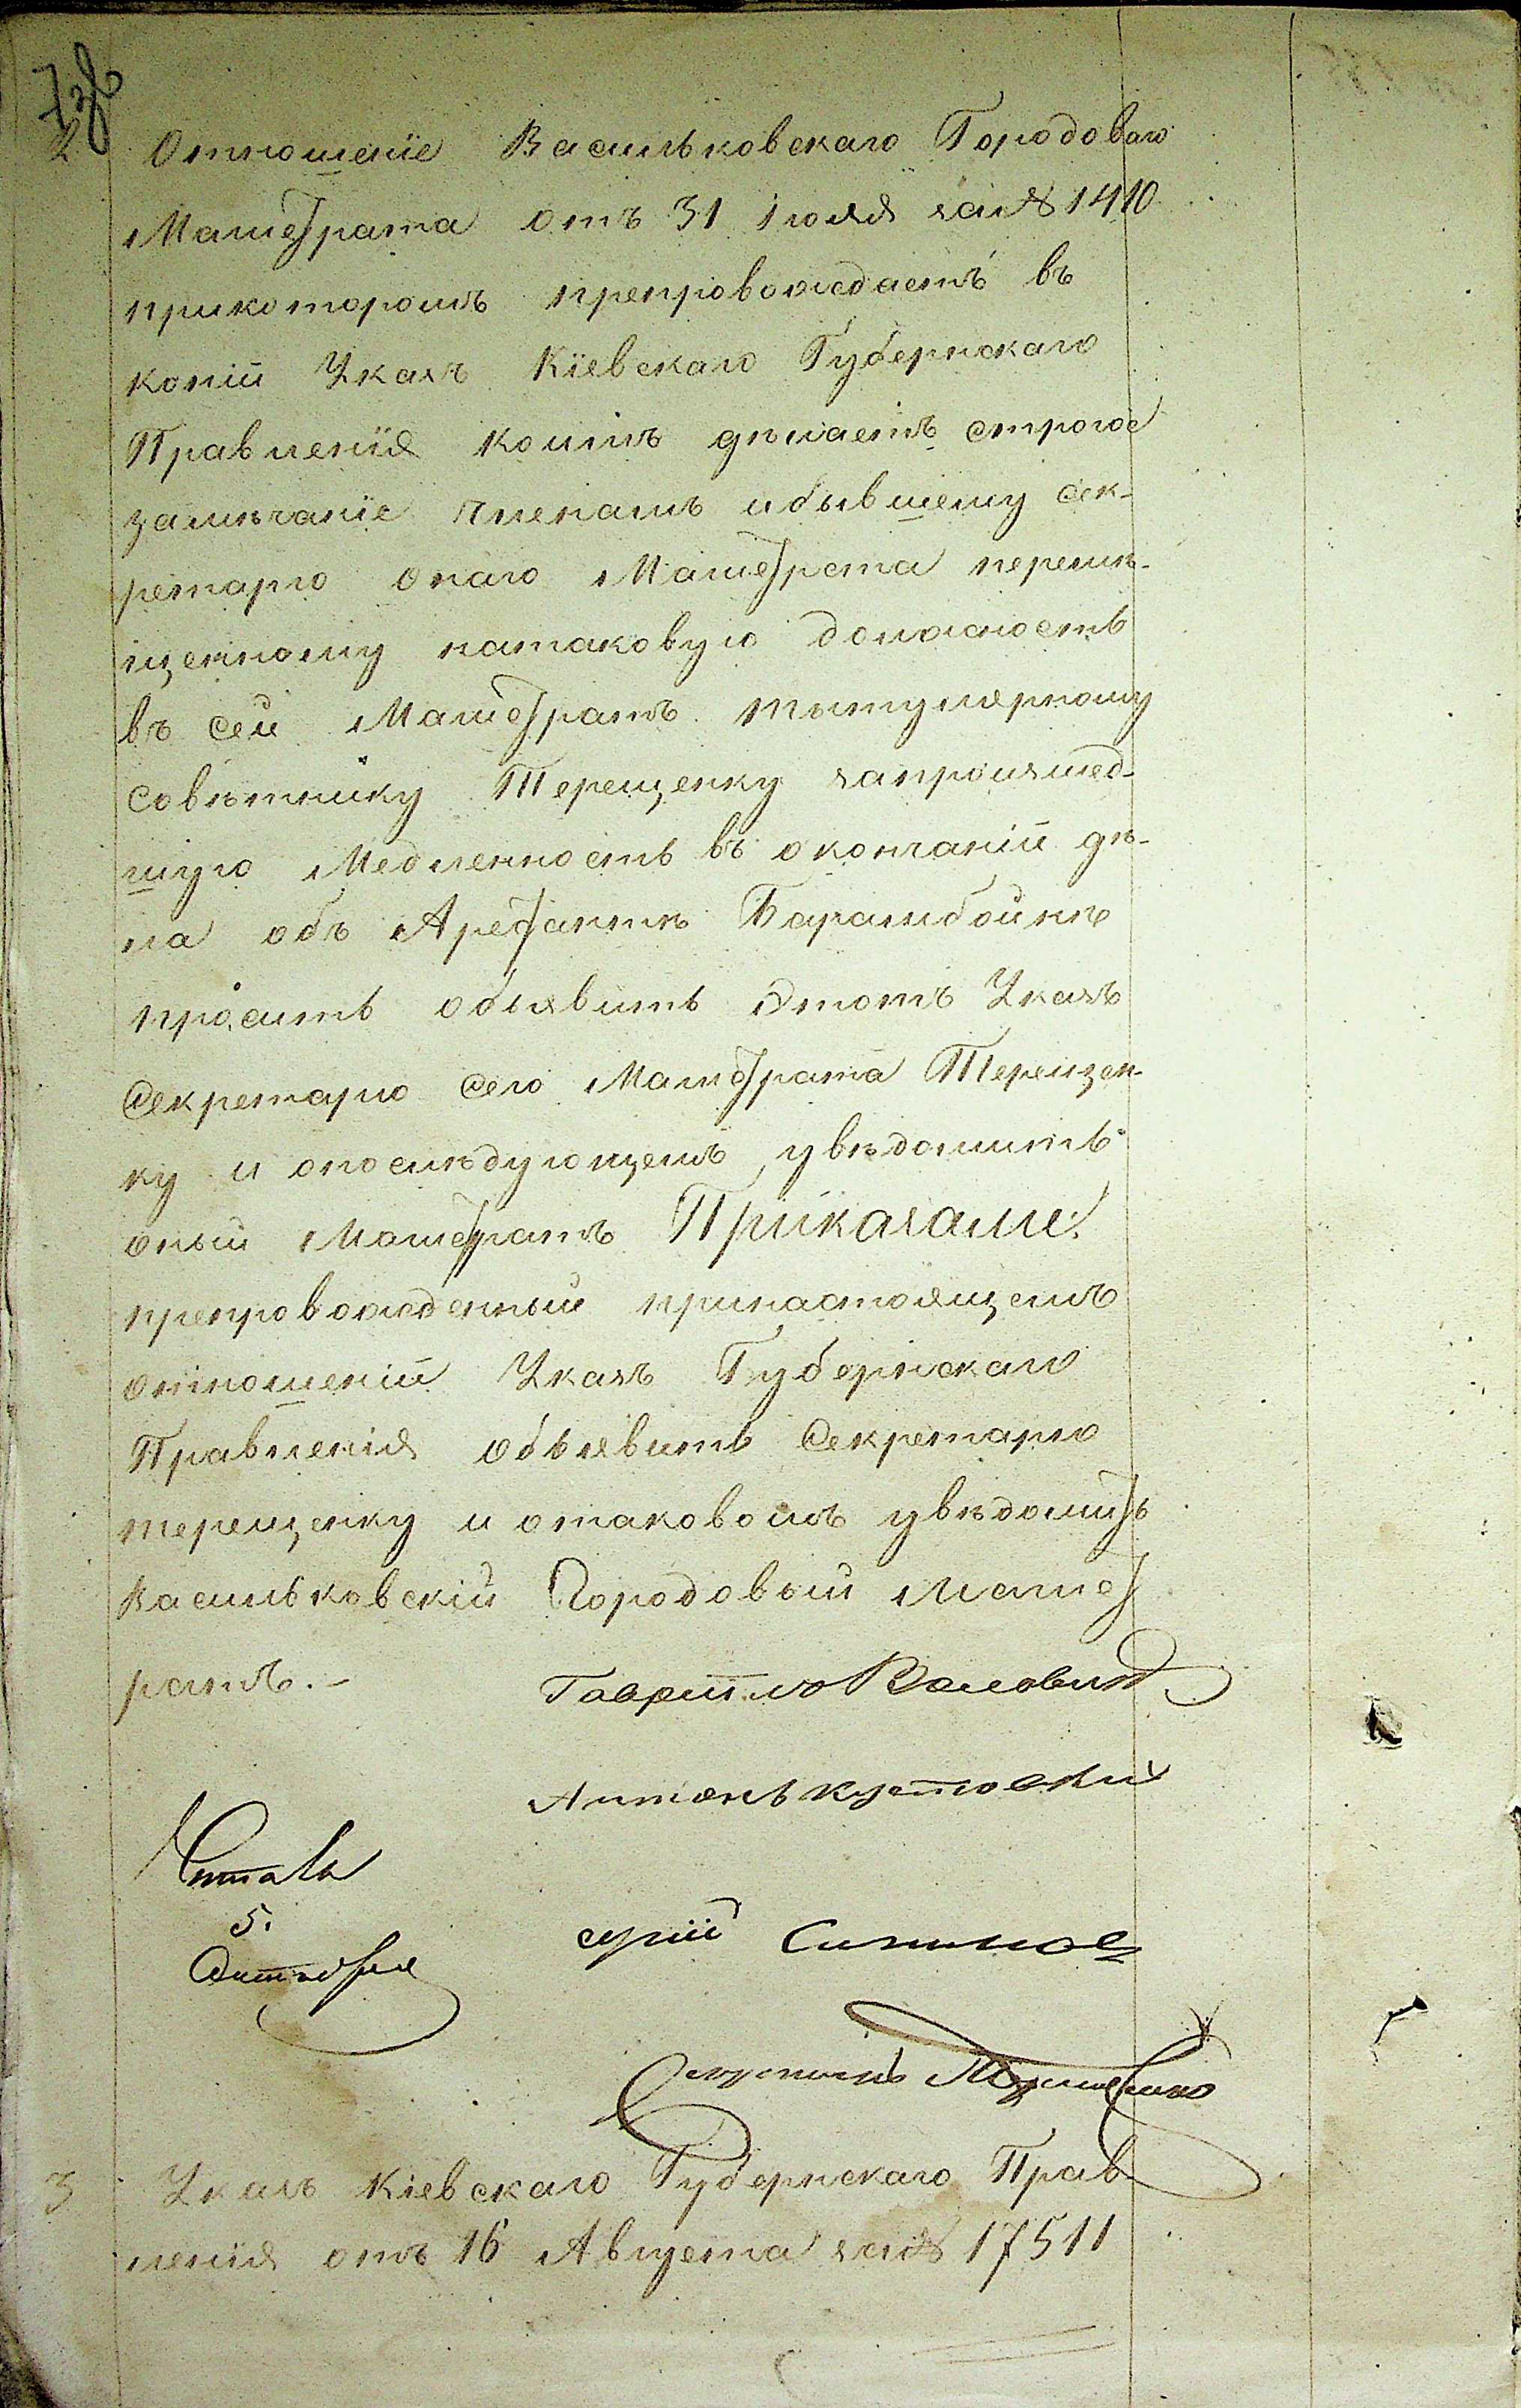 2 Отношеніе Васильковскаго Городоваго
Магистрата отъ 31 Іюля за № 1410
прикоторомъ препровождаетъ въ
копіи Указъ Кіевскаго Губернскаго
Правленія коимъ дѣлаетъ строгое
замѣчаніе членамъ ибывшему сек-
ретарю онаго Магистрата перемѣ-
щенному натаковую должность
въ сей Магистратъ тытулярному
совѣтнику Терещенку запроизшед-
шую Медленность въ окончаніи дѣ-
ла объ Арестантѣ Барамбойкѣ
проситъ объявить Этотъ Указъ
Секретарю Сего Магистрата Терещен-
ку и опослѣдующемъ увѣдомить
оный Магистратъ Приказали:
препровожденный принастоящемъ
отношеніи Указъ Губернскаго
Правленія объявить Секретарю
терещенку и отаковомъ увѣдомить
Васильковскій Городовый Магист
ратъ.-
Гаврiило
Антонъ
Читалъ
5.
Октября
3 Указъ Кіевскаго Губернскаго Прав
ленія отъ 16 Августа за № 17511